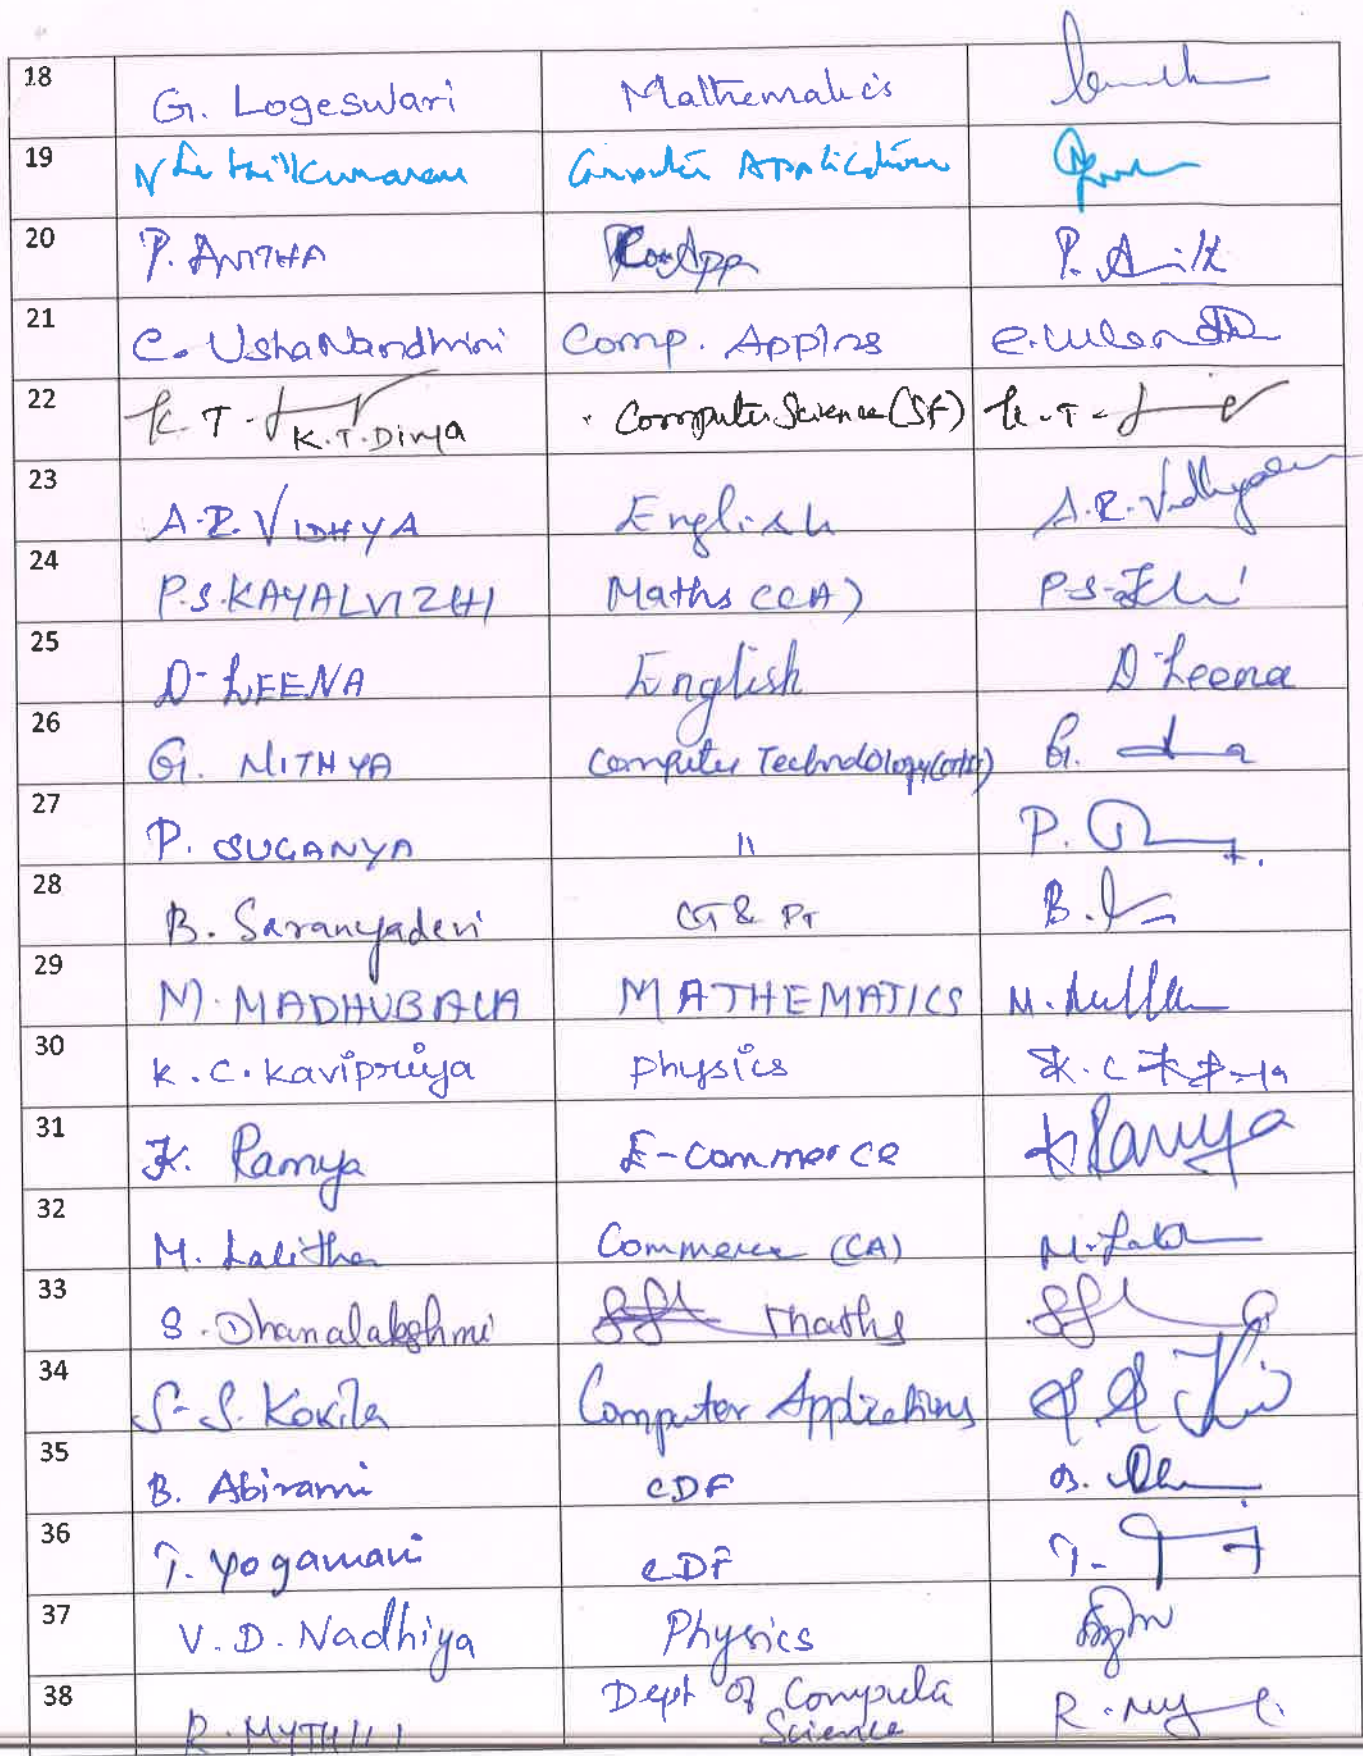 18 G. Logeswari Mathematics
19 N Computer Application
20 P. ANITHA P. Anitha
21 C. UshaNandhini Comp. Applns
22 K.T. K.T. Divya Computer Science (SF) K.T.
23 A.R. VIDHYA English A.R. Vidhya
24 P.S. KAYALVIZHI Maths (CA) P.S.
25 D. LEENA English D. Leena
26 G. NITHYA Computer Technology G.
27 P. SUGANYA " P.
28 B. Saranyadevi CT & B.
29 M. MADHUBALA MATHEMATICS M.
30 K.C. Kavipriya physics K.C
31 K. Ramya E-commerce K Ramya
32 M. Lalitha Commerce (CA) M.
33 S. Dhanalakshmi Maths
34 S. S. Kokila Computer Applications
35 B. Abirami CDF B.
36 T. Yogamani CDF T.
37 V. D. Nadhiya Physics
38 R. MYTHILI Dept of Computer
Science R.